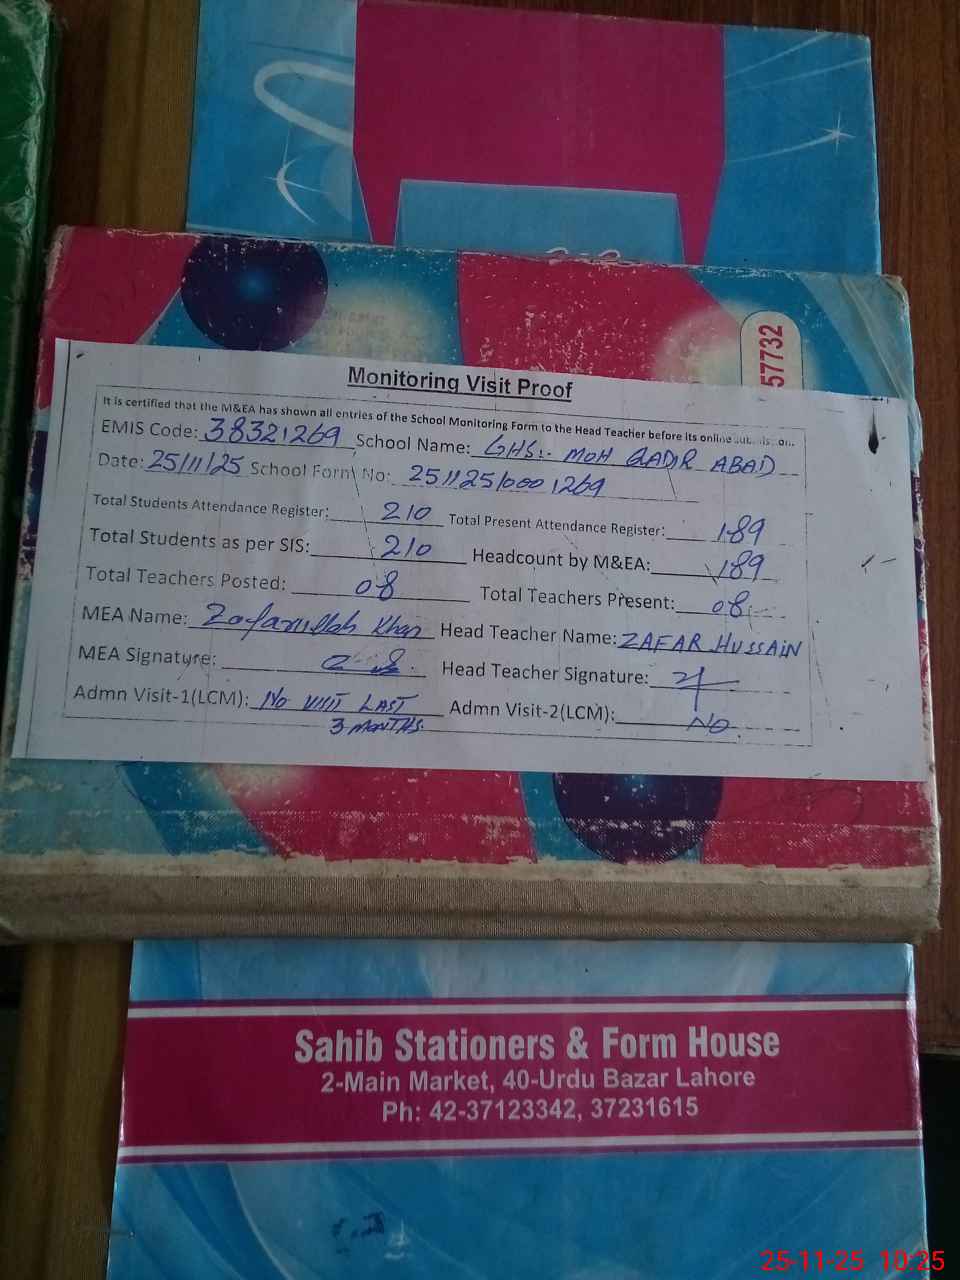 57732
Monitoring Visit Proof
It is certified that the M&EA has shown all entries of the School Monitoring Form to the Head Teacher before its online submission.
EMIS Code: 38321269 School Name: GHS:- MOH QADIR ABAD
Date: 25/11/25 School Form No: 2511251000 1269
Total Students Attendance Register: 210 Total Present Attendance Register: 189
Total Students as per SIS: 210 Headcount by M&EA: 189
Total Teachers Posted: 08 Total Teachers Present: 08
MEA Name: Zafarullah Khan Head Teacher Name: ZAFAR HUSSAIN
MEA Signature: Head Teacher Signature:
Admn Visit-1(LCM): No VISIT LAST Admn Visit-2(LCM): NO
3 MONTHS.
Sahib Stationers & Form House
2-Main Market, 40-Urdu Bazar Lahore
Ph: 42-37123342, 37231615
25-11-25 10:25